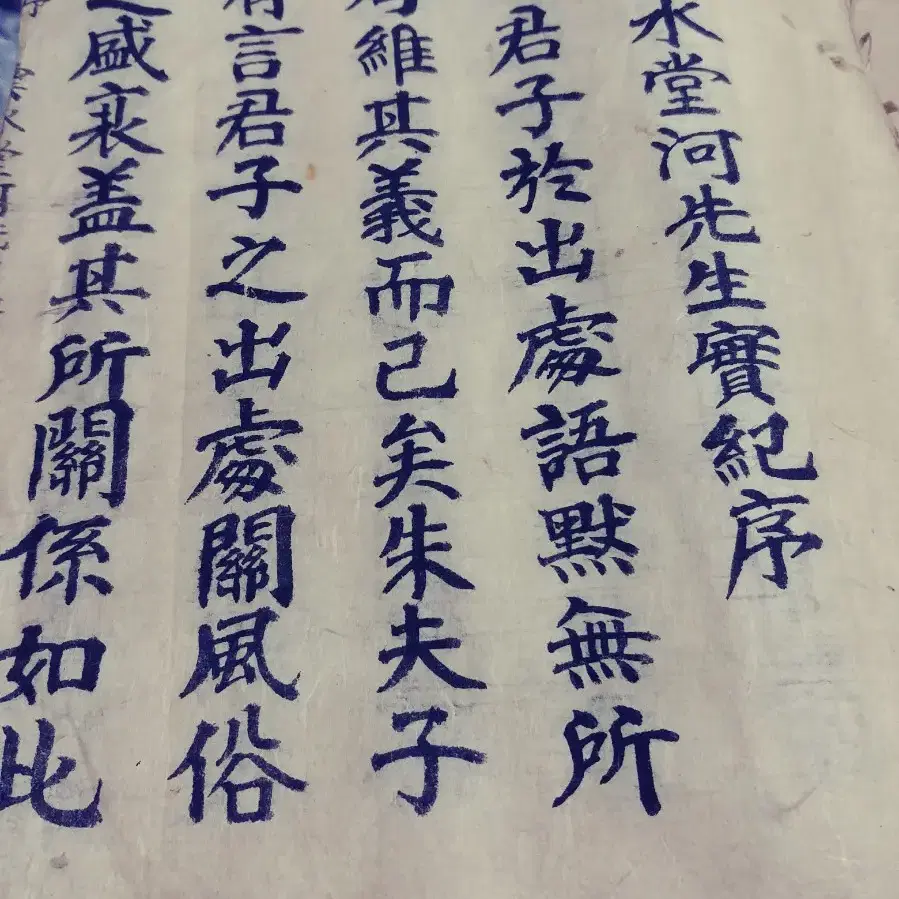 水堂河先生實紀序
君子於出處語默無所
維其義而已矣朱夫子
有言君子之出處關風俗
之盛衰盖其所關係如此